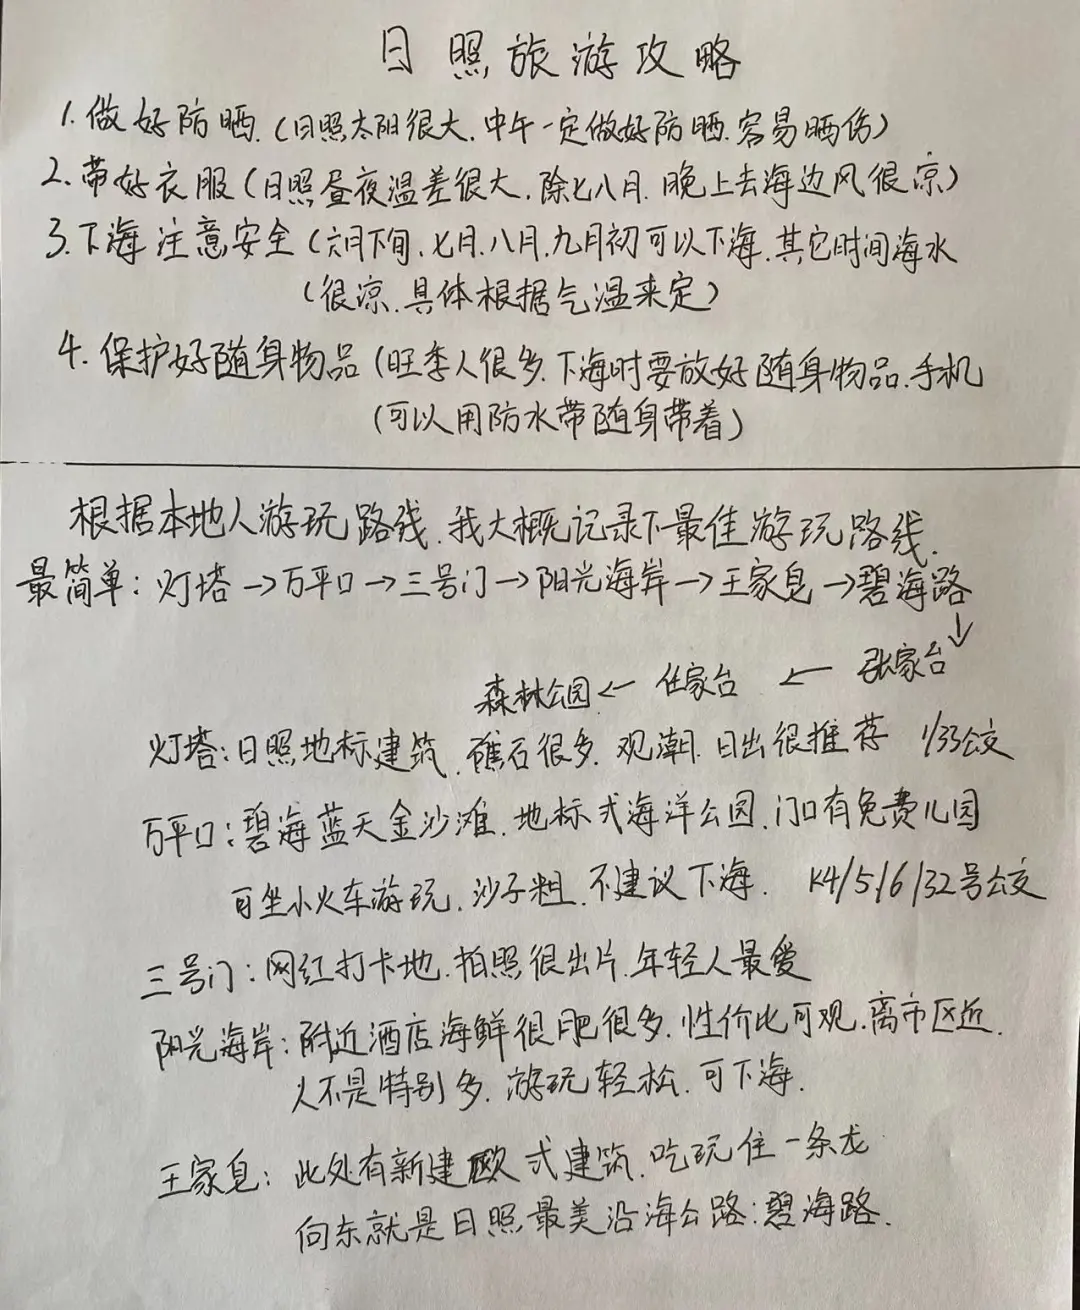 日照旅游攻略
1.做好防晒.(日照太阳很大.中午一定做好防晒.容易晒伤)
2.带好衣服(日照昼夜温差很大.除七八月.晚上去海边风很凉)
3.下海注意安全(六月下旬、七月.八月.九月初可以下海.其它时间海水
(很凉.具体根据气温来定)
4.保护好随身物品(旺季人很多.下海时要放好随身物品.手机
(可以用防水带随身带着)
根据本地人游玩路线.我大概记录下最佳游玩路线.
最简单:灯塔→万平口→三号门→阳光海岸→王家皂→碧海路
↓
森林公园← 任家台 ← 张家台
灯塔:日照地标建筑.礁石很多.观潮.日出很推荐 1/33公交
万平口:碧海蓝天金沙滩.地标式海洋公园.门口有免费儿园
可坐小火车游玩.沙子粗.不建议下海. K4/5/6/32号公交
三号门:网红打卡地.拍照很出片.年轻人最爱
阳光海岸:附近酒店海鲜很肥很多.性价比可观.离市区近.
人不是特别多.游玩轻松.可下海.
王家皂:此处有新建欧式建筑.吃玩住一条龙
向东就是日照最美沿海公路:碧海路.